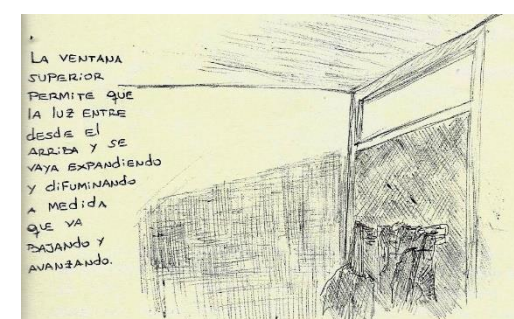 LA VENTANA
SUPERIOR
PERMITE QUE
LA LUZ ENTRE
desde El
ARRIBA Y SE
VAYA EXPANdiENdo
Y diFUMINANdo
A MEdidA
QUE VA
BAJANDO Y
AVANZANdo.